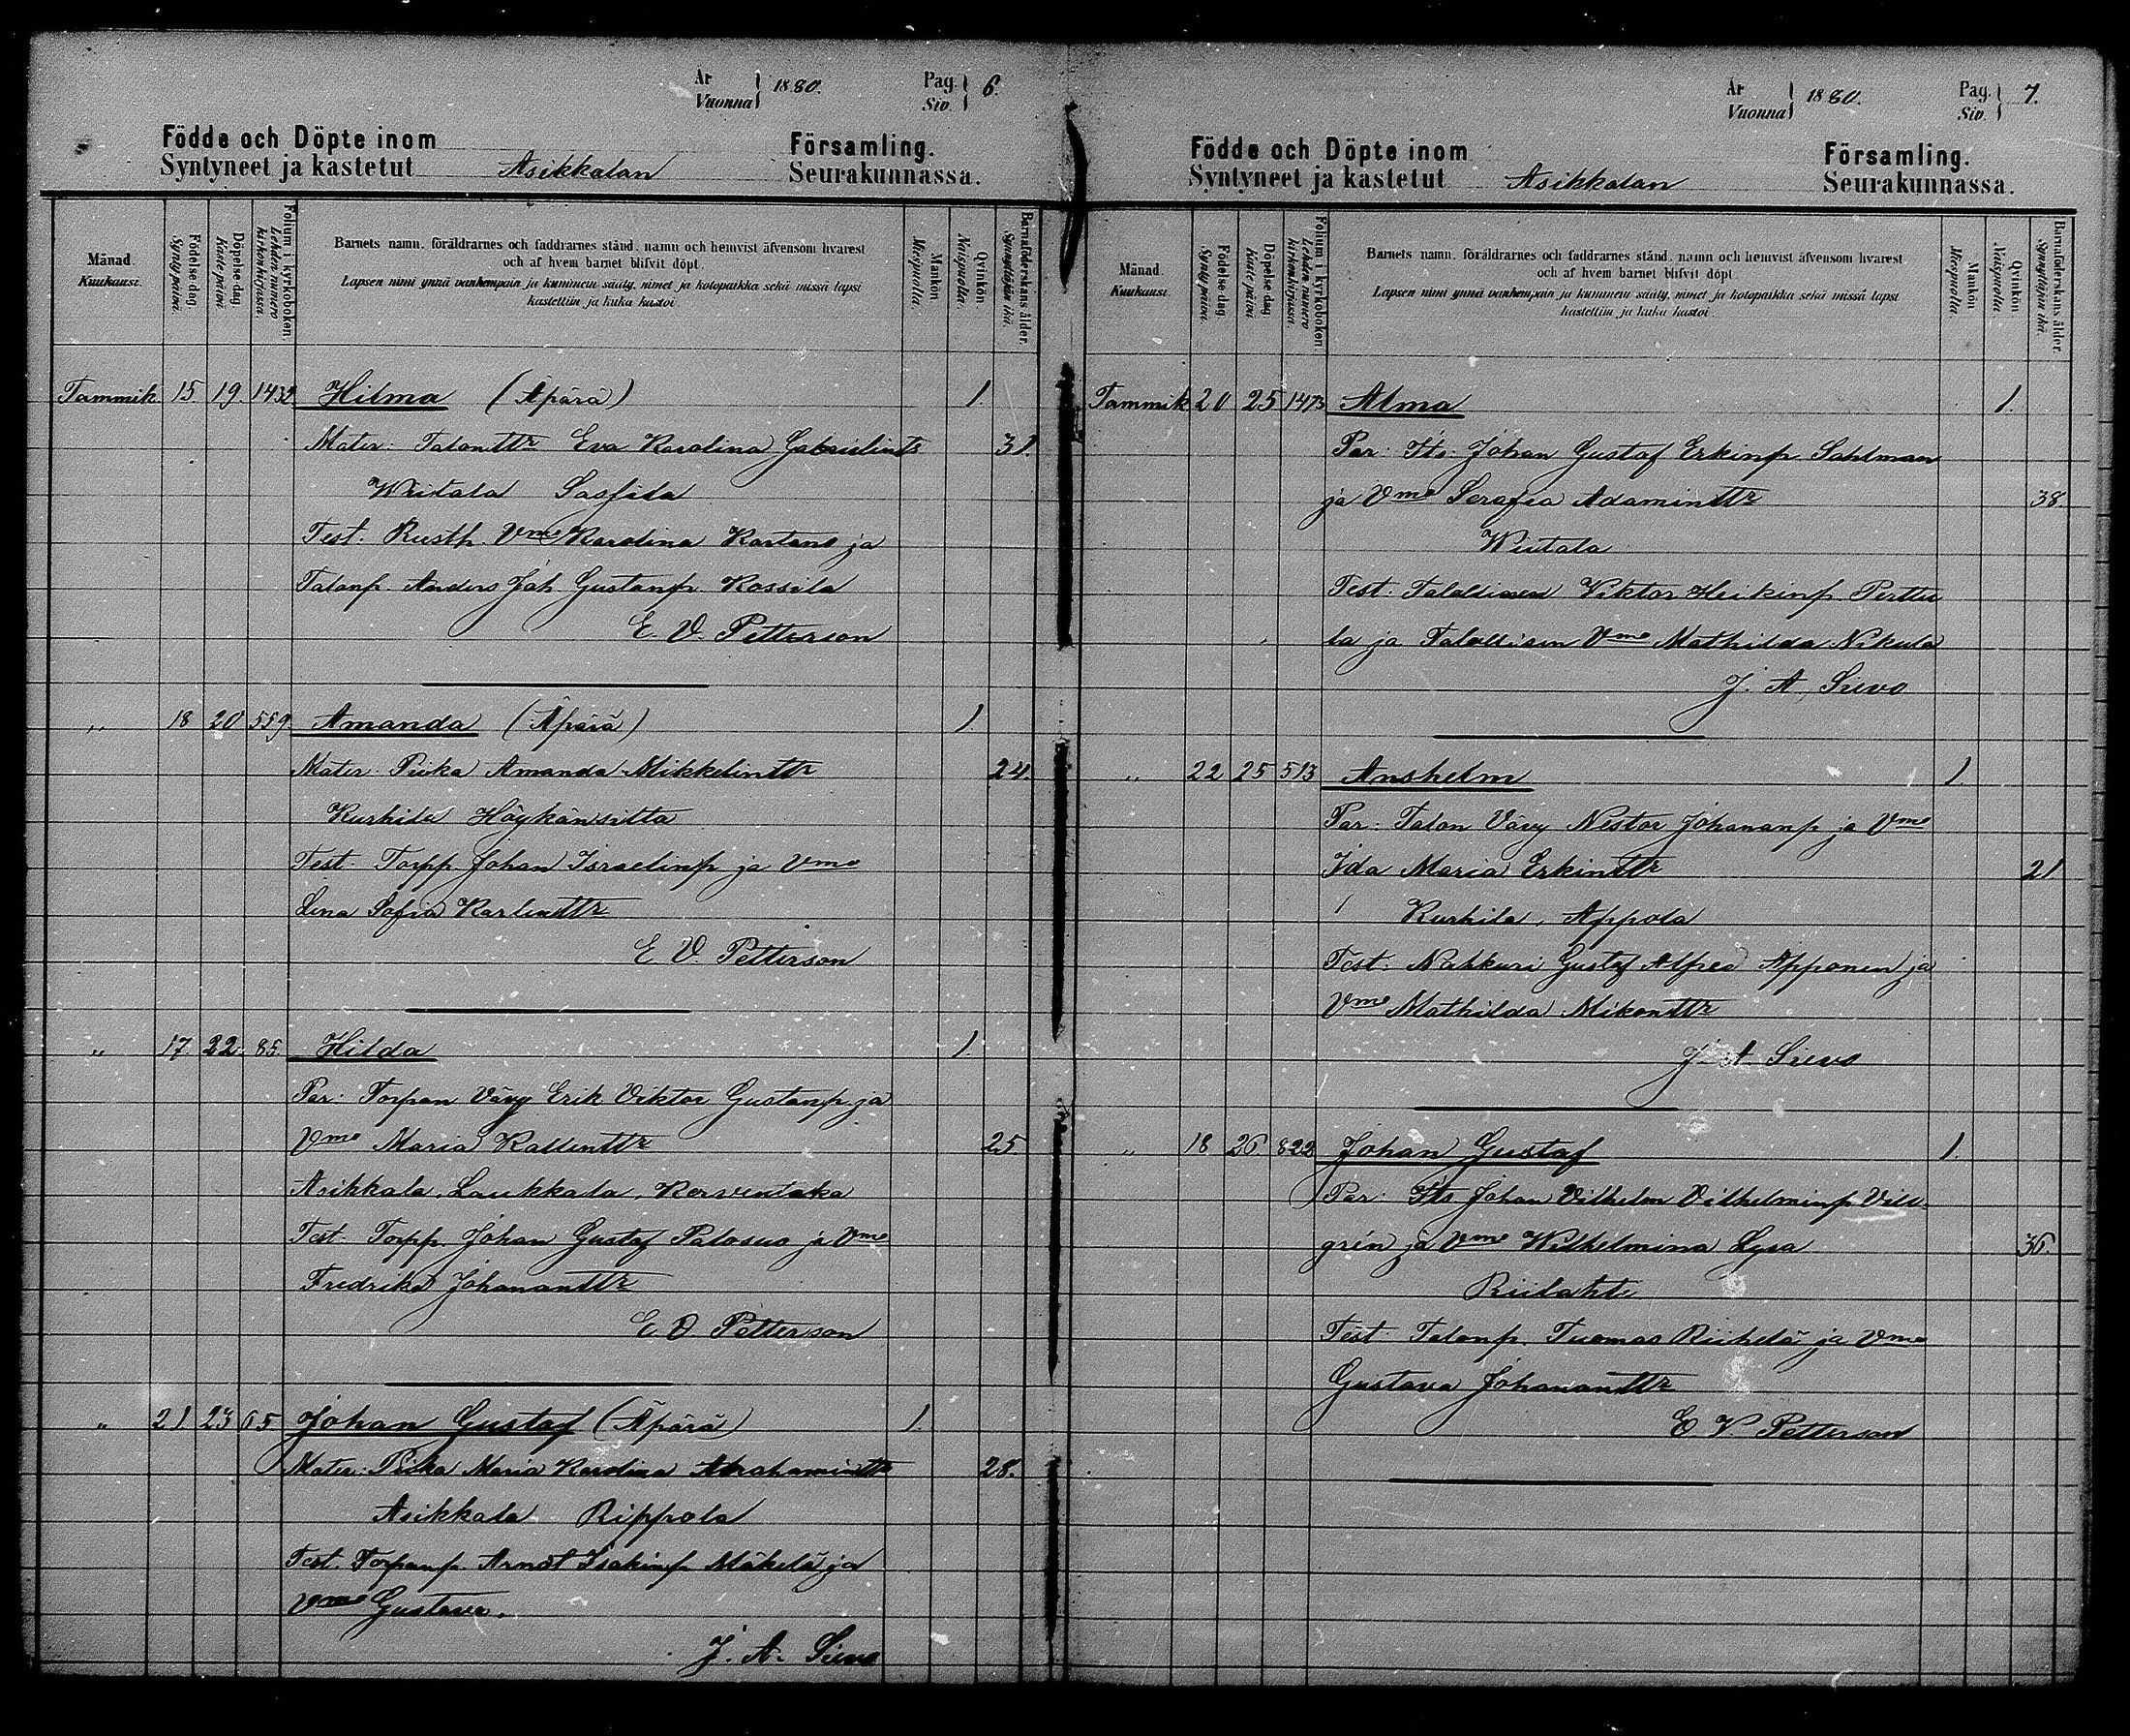 År
Vuonna 1880.
Pag.
Siv. 6.
Födde och Döpte inom
Syntyneet ja kastetut Asikkalan
Församling.
Seurakunnassa.
Månad.
Kuukausi.
Födelse dag.
Synty päivä.
Döpelse dag.
Kaste päivä.
Folium i kyrkoboken.
Lehden numero kirkonkirjassa.
Barnets namn, föräldrarnes och faddrarnes stånd, namn och hemvist äfvensom hvarest
och af hvem barnet blifvit döpt.
Lapsen nimi ynnä vanhempain ja kummein sääty, nimet ja kotopaikka sekä missä lapsi
kastettiin ja kuka kastoi.
Mankön
Miespuolta.
Qvinkön.
Naispuolta.
Barnaföderskans ålder.
Synnyttäjän ikä.
Tammik. 15. 19. 1432 Hilma (Äpärä) 1.
Mater: Talonttr Eva Karolina Gabrielintr 31.
Wiitala
Test: Rusth. Vmo Karolina Kartano ja
Talonp. Anders Joh Gustanp. Kossila
E. V. Petterson
" 18 20 559 Amanda (Äpärä) 1.
Mater: Piika Amanda Mikkelinttr 24.
Kurhila Höykänsilta
Test. Torpp. Johan Israelinp ja Vmo
Lena Sofia Karlinttr
E V. Petterson
" 17. 22. 85. Hilda 1.
Par: Torpan Vävy Erik Viktor Gustanp. ja
Vmo Maria Kallenttr 25
Asikkala, Laukkala, Korventaka
Test: Torpp. Johan Gustaf Palosuo ja Vmo
Fredrika Johananttr
E V Petterson
" 21. 23 65 Johan Gustaf (Äpärä) 1.
Mater: Piika Maria Karolina Abrahaminttr 28.
Asikkala Rippola
Test. Torpanp. Arnot Isakinp Mäkelä ja
Vmo Gustava.
J. A. Sievo
År
Vuonna 1880.
Pag.
Siv. 7.
Födde och Döpte inom
Syntyneet ja kastetut Asikkalan
Församling.
Seurakunnassa.
Månad.
Kuukausi.
Födelse dag.
Synty päivä.
Döpelse dag.
Kaste päivä.
Folium i kyrkoboken.
Lehden numero kirkonkirjassa.
Barnets namn, föräldrarnes och faddrarnes stånd, namn och hemvist äfvensom hvarest
och af hvem barnet blifvit döpt.
Lapsen nimi ynnä vanhempain ja kummein sääty, nimet ja kotopaikka sekä missä lapsi
kastettiin ja kuka kastoi.
Mankön
Miespuolta.
Qvinkön
Naispuolta.
Barnaföderskans ålder.
Synnyttäjän ikä.
Tammik 20 25 1473 Alma 1.
Par: Its: Johan Gustaf Erkinp. Sahlman
ja Vmo Serafia Adaminttr 38.
Wiitala
Test: Talollinen Viktor Heikinp. Perttu
la ja Talollisen Vmo Mathilda Nikula
J. A. Sievo
" 22 25 513 Anshelm 1.
Par: Talon Vävy Nestor Johananp ja Vmo
Ida Maria Erkinttr 21
Kurhila, Appola
Test: Nahkuri Gustaf Alfred Apponen ja
Vmo Mathilda Mikonttr
J. A Sievo
" 18 26 822 Johan Gustaf 1.
Par: Its Johan Vilhelm Vilhelminp Vill-
grén ja Vmo Wilhelmina Lysa 36.
Riilahti
Test: Talonp. Tuomas Riihelä ja Vmo
Gustava Johananttr
E V Petterson